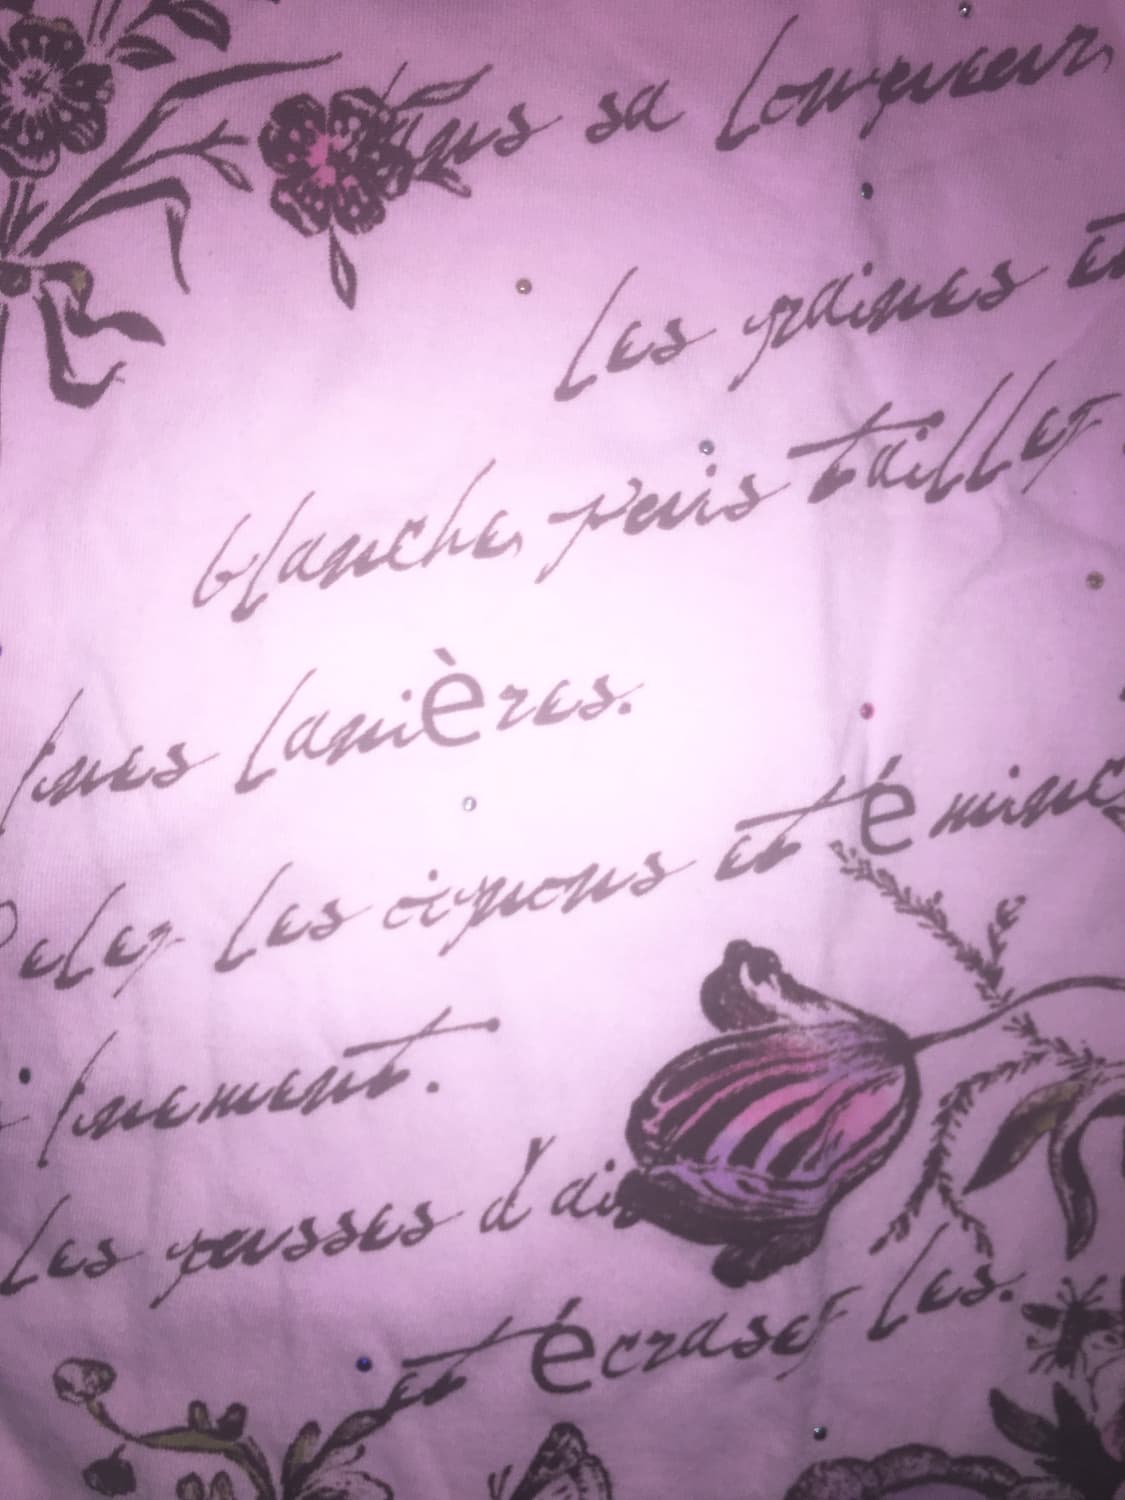 sa longueur,
Les graines et
blanche, puis taillez
fines lanières.
Pelez les oignons et éminc
finement.
Les gousses d'ai
et écrasez les.